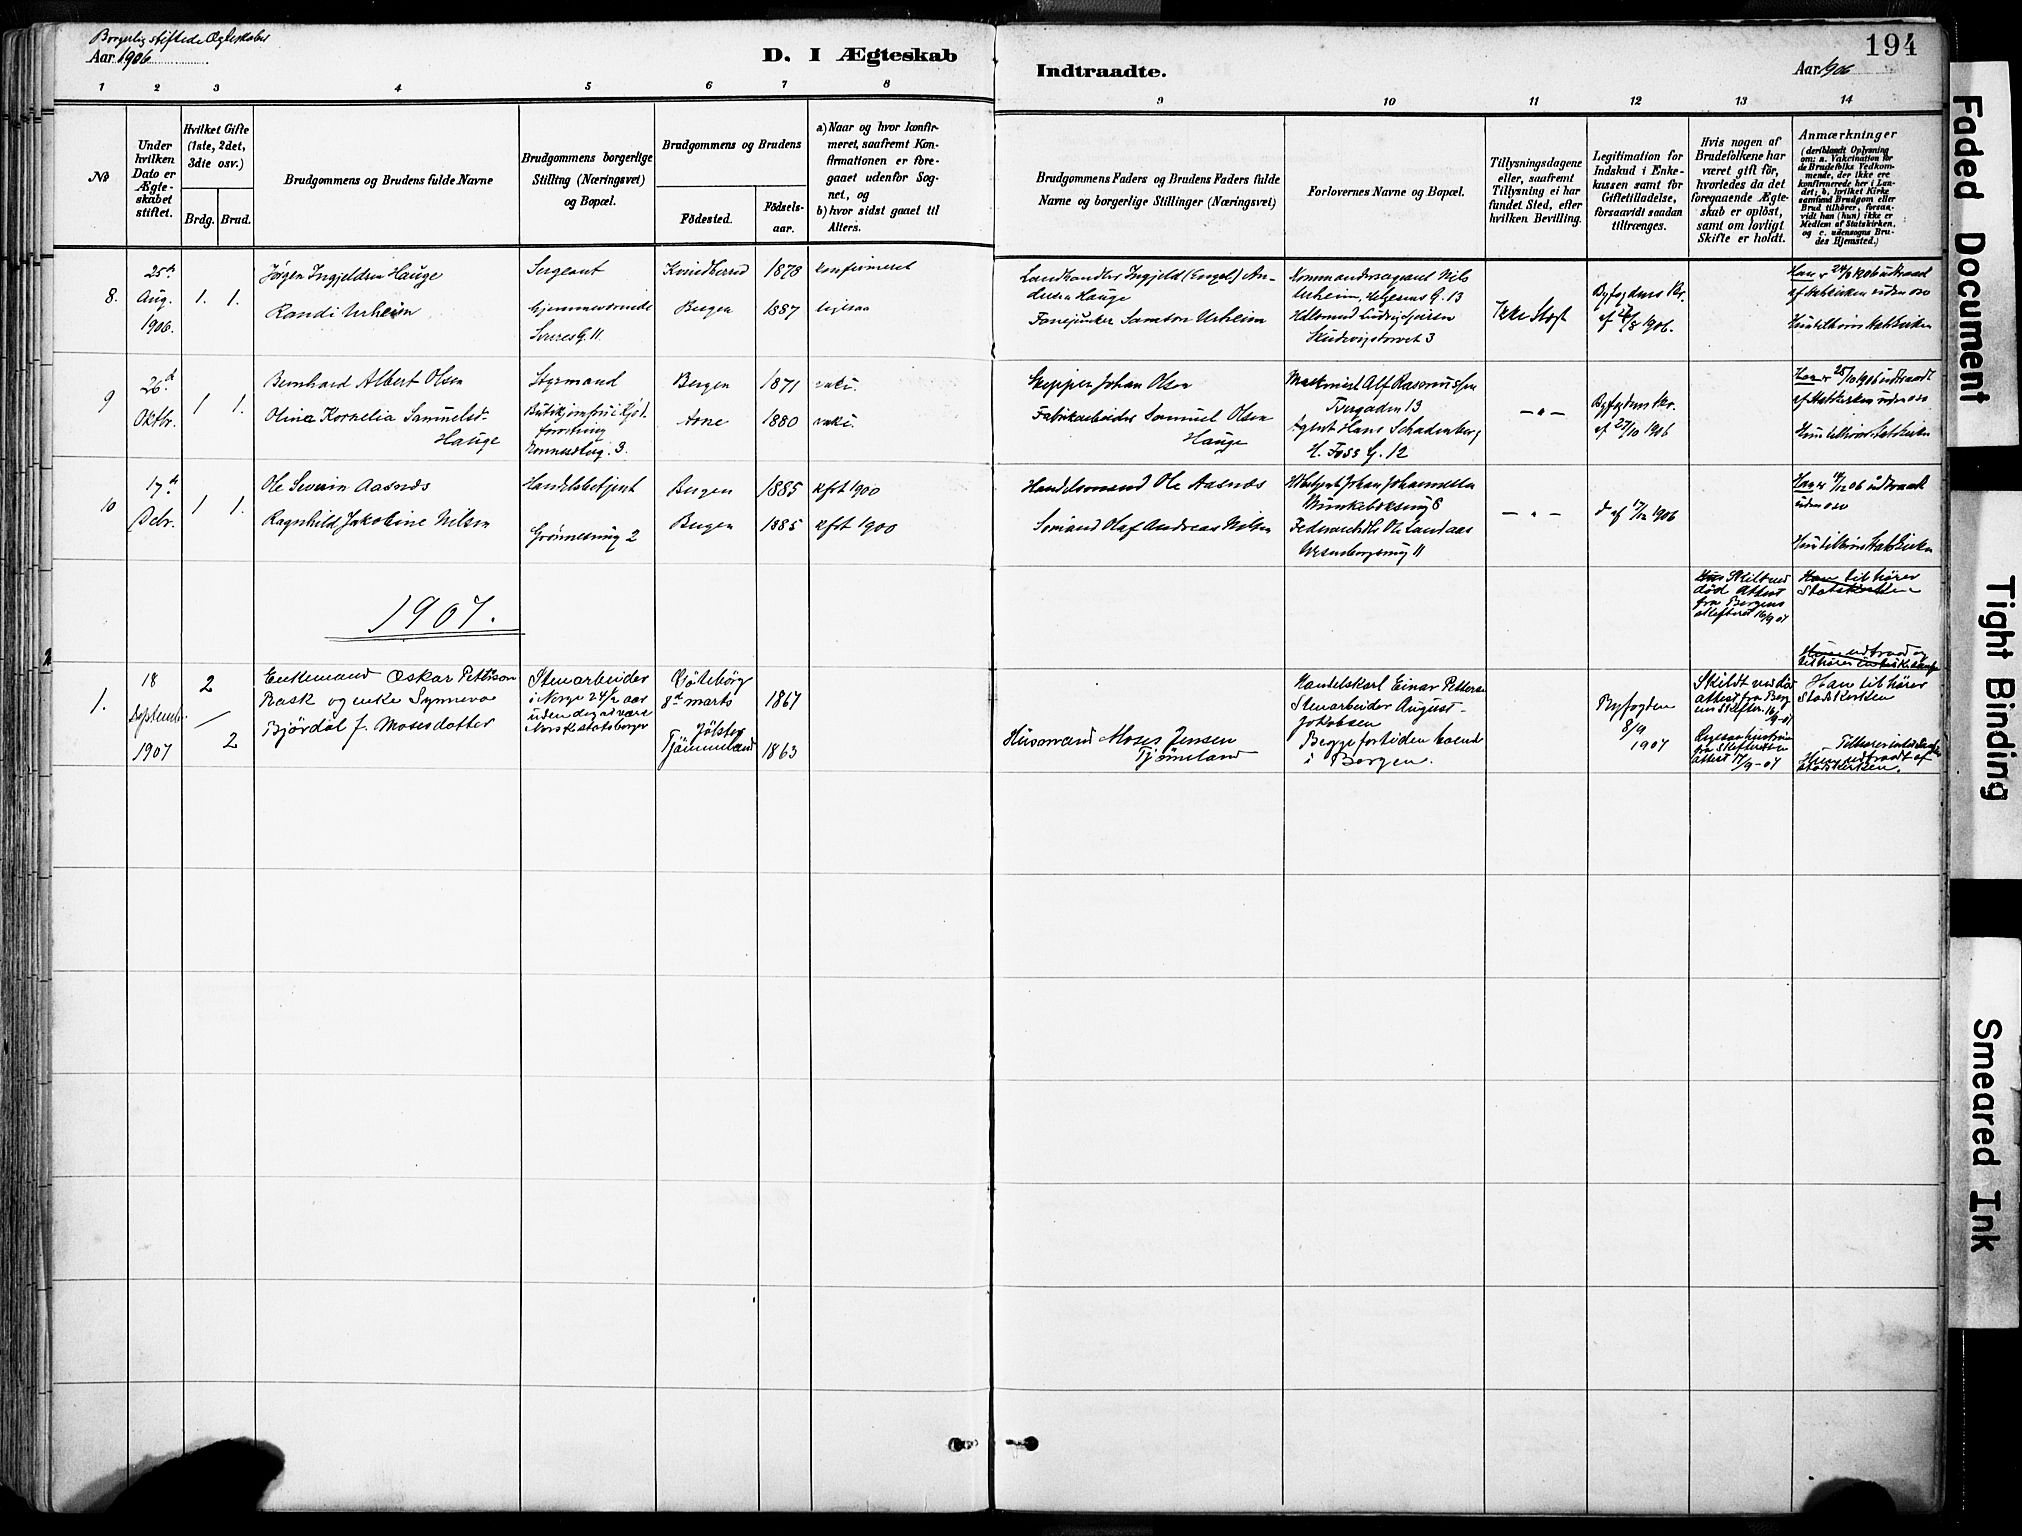 Borgerlig stiftede Ægteskaber
Aar 1906
D. I Ægteskab
Indtraadte.
Aar 1906
194
1 2 3 4 5 6 7 8 9 10 11 12 13 14
No
Under
hvilken
Dato er
Ægte-
skabet
stiftet.
Hvilket Gifte
(1ste, 2det,
3die osv.)
Brdg. Brud.
Brudgommens og Brudens fulde Navne
Brudgommens borgerlige
Stilling (Næringsvei)
og Bopæl.
Brudgommens og Brudens
Födested.
Födsels-
aar.
a) Naar og hvor konfir-
meret, saafremt Kon-
firmationen er fore-
gaaet udenfor Sog-
net, og
b) hvor sidst gaaet til
Alters.
Brudgommens Faders og Brudens Faders fulde
Navne og borgerlige Stillinger (Næringsvei)
Forlovernes Navne og Bopæl.
Tillysningsdagene
eller, saafremt
Tillysning ei har
fundet Sted, efter
hvilken Bevilling.
Legitimation for
Indskud i Enke-
kassen samt for
Giftetilladelse,
forsaavidt saadan
tiltrænges.
Hvis nogen af
Brudefolkene har
været gift før,
hvorledes da det
foregaaende Ægte-
skab er oplöst,
samt om lovligt
Skifte er holdt.
Anmærkninger
(deriblandt Oplysning
om: a. Vakcination for
de Brudefolks Vedkom-
mende, der ikke ere
konfirmerede her i Lan-
det; b. hvilket Kirke
samfund Brudgom eller
Brud tilhører, forsaa-
vidt han (hun) ikke er
Medlem af Statskirken,
og c. udensogns Bru-
des Hjemsted.)
8.
25de
Aug.
1906.
1. 1.
Jørgen Ingjeldsen Hauge
Randi Urheim
Sergeant
Hjemmeværende
Sverresg. 11.
Kvindherred 1878
Bergen 1887
konfirmeret
ligesaa
Landhandler Ingjeld (Engel) An-
dersen Hauge
Fanejunker Samson Urheim
Kommandersergeant Nils
Urheim, Helgesens G. 13
3
Ikke Skegt
Byfogdens Br.
af 24/8 1906.
Han er 24/8 1906 udtraadt
af Statskirken uden osv
Hun tilhører Statskirken
9
26de
Oktbr.
1 1.
Bernhard Albert Olsen
Olina Kornelia Samuelsd.
Hauge
Styrmand
3.
Bergen 1871
Arne 1880
Skipper Johan Olsen
Fabrikarbeider Samuel Olsen
Hauge
Maskinist Alf Rasmussen
13
Agent Hans Schadenberg
H. Foss G. 12
— „ —
Byfogdens Br.
af 27/10 1906
Han er 25/10 1906 udtraadt
af Statskirken uden osv
Hun tilhører Statskirken
10
17de
Debr.
1 1.
Ole Severin Aasnæs
Ragnhild Jakobine Nilsen
Handelsbetjent
Grønnesmug 2
Bergen 1885 kft 1900
Bergen 1885 kft 1900
Handelsmand Ole Aasnæs
Sømand Olaf Andreas Nilsen
Johan Johannesen
Munkebæksmug 6
Ole Landaas
11
— „ —
17/12 1906
Han er udtraadt
uden osv
Hun tilhører Statskirken
1907.
Skilt ved
død Attest
fra Bergens
skifteret 16/9 07
Han tilhører
Statskirken
1.
18
September
1907
2 / 2
Enkemand Oskar Pettersson
Rask og enke Synneva
Bjørdal f. Mosesdotter
Stenarbeider
i Norge 24½ aar
uden dog at være
Norsk statsborger
Göteborg
8de marts 1867
Jølster
Tjømmeland 1863
Husmand Moses Jensen
Tjømeland
Handelskarl Einar Petters
Stenarbeider August
Jakobsen
Begge for tiden boende
i Bergen.
Byfogden
8/9
1907
Skildt ved død
attest fra Berg
ens Skifter. 16/9-07
fra Skifteretten
attest 17/9-07
Han tilhører
Statskirken
Hun udtraadt af
statskirken.
Faded Document
Tight Binding
Smeared Ink